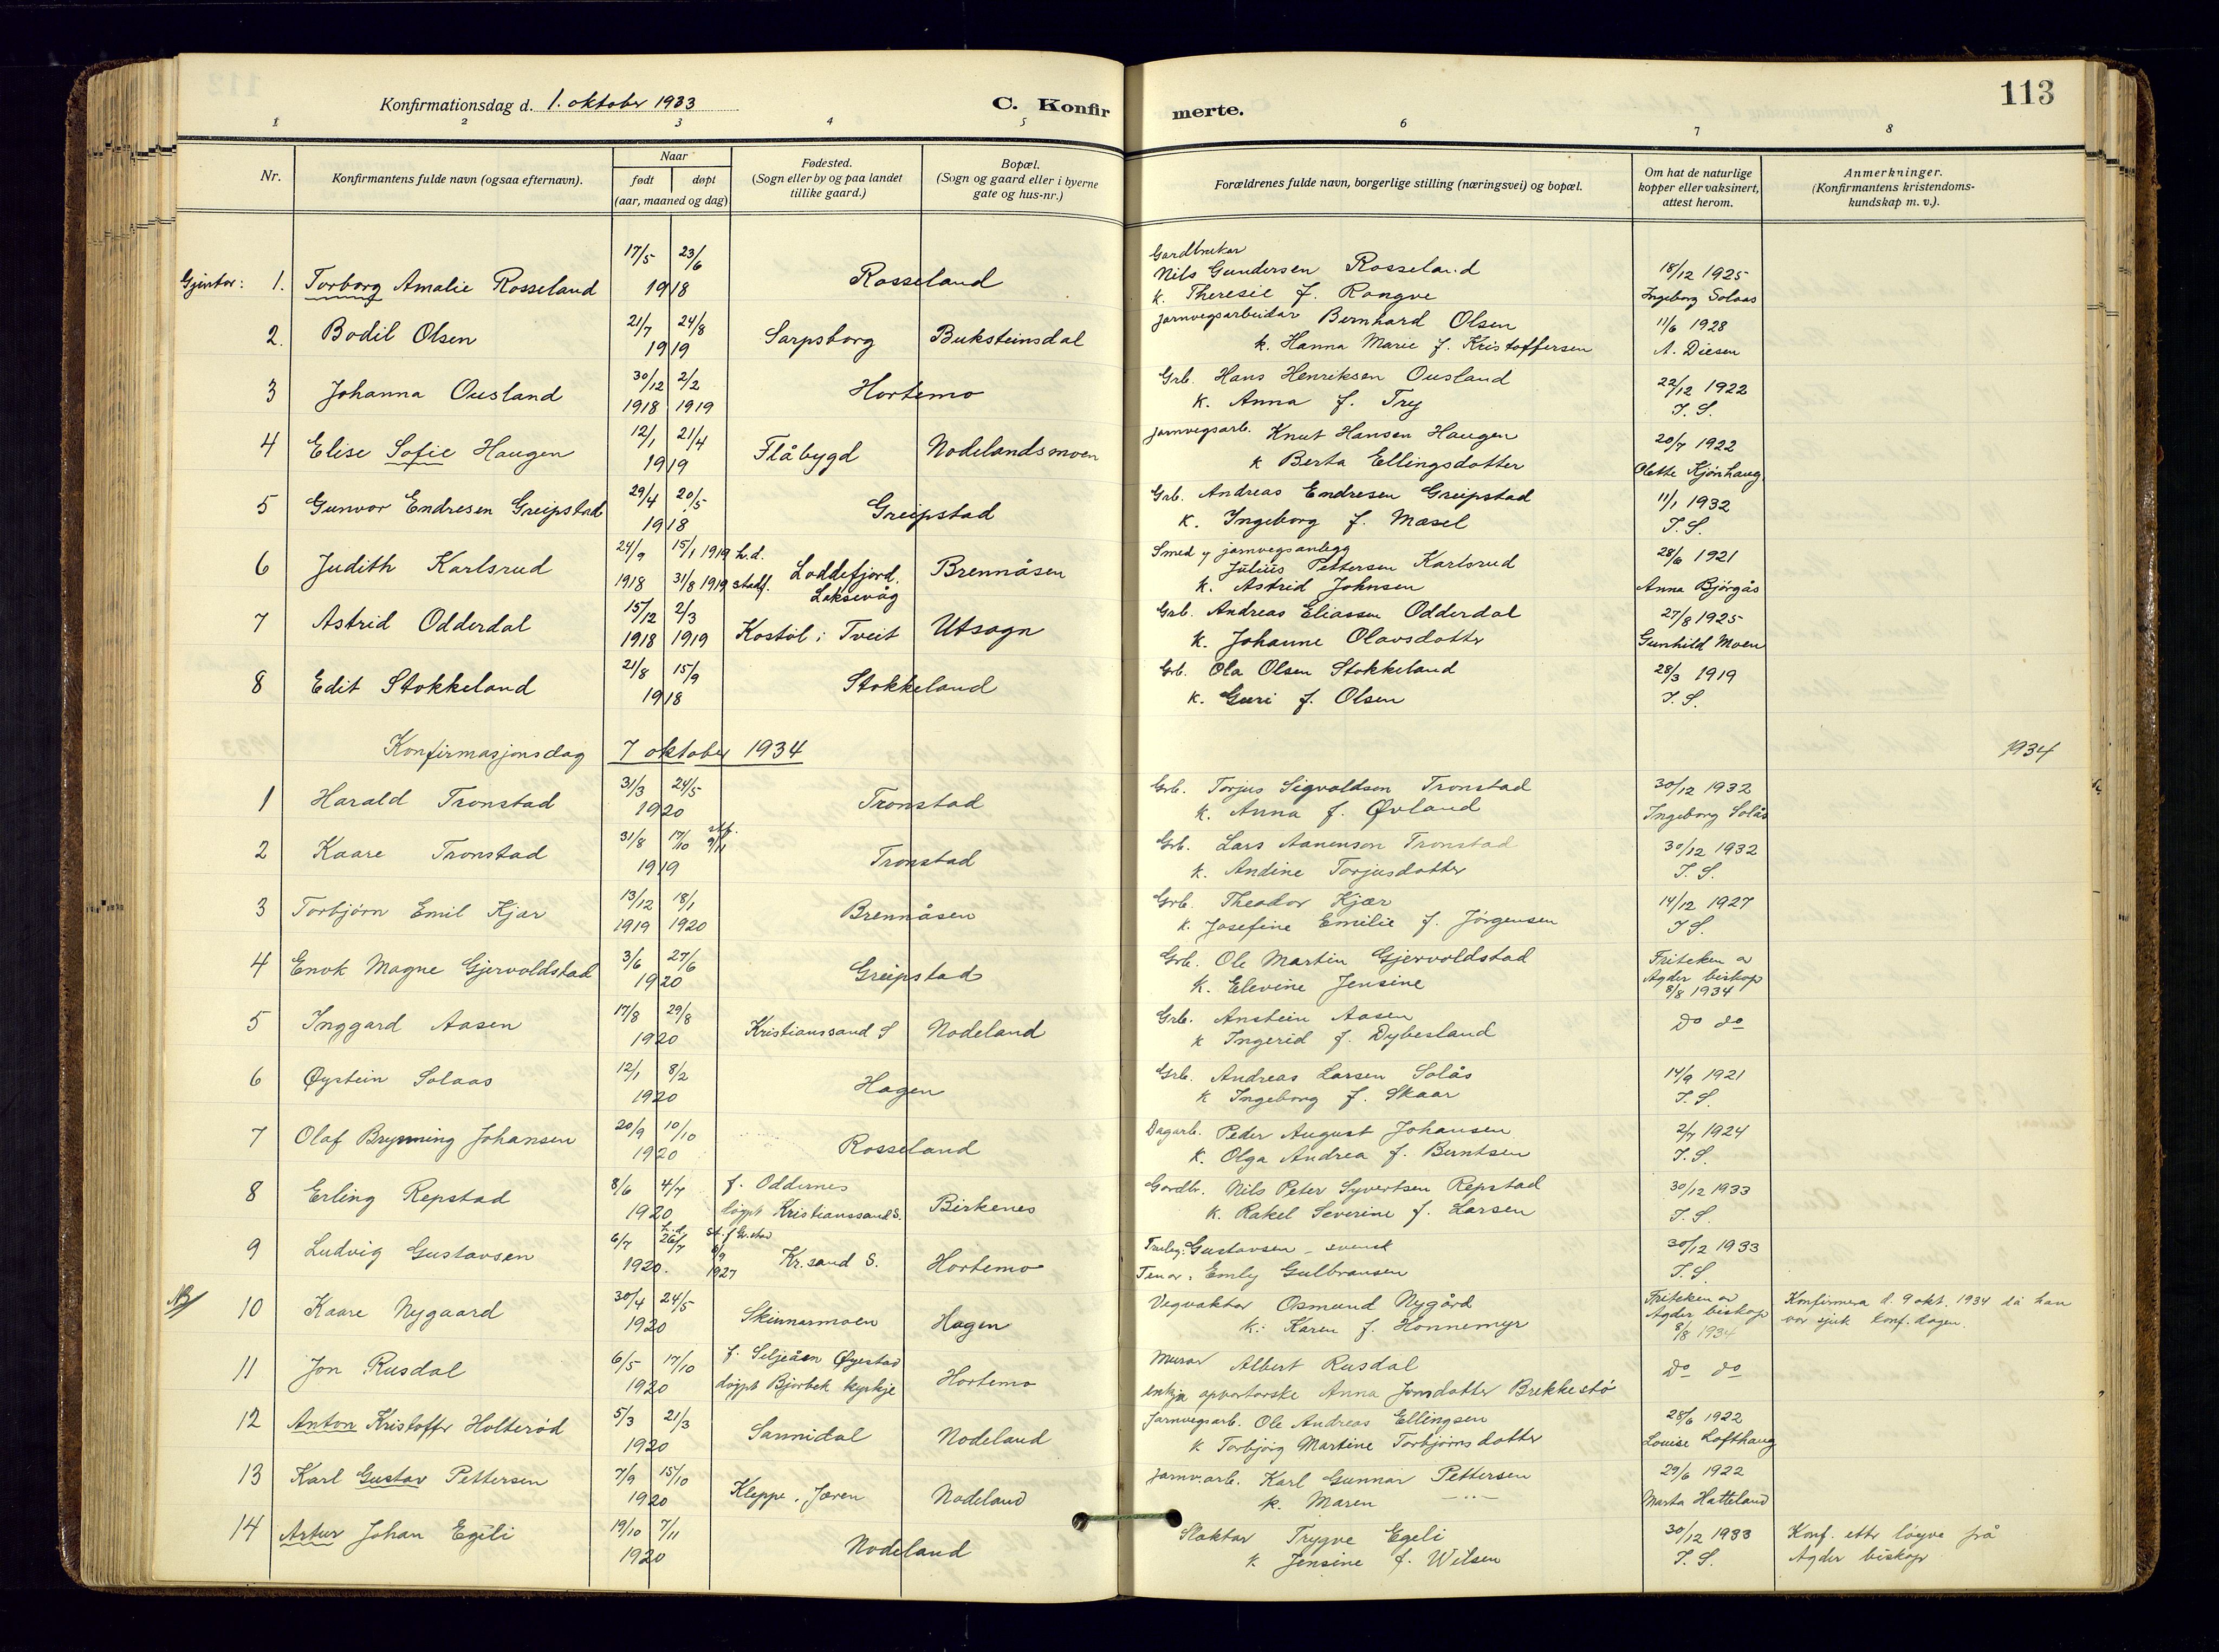 113
Konfirmationsdag d. 1. oktober 1933
C. Konfirmerte.
1 2 3 4 5 6 7 8
Nr.
Konfirmantens fulde navn (ogsaa efternavn).
Naar
født døpt
(aar, maaned og dag)
Fødested.
(Sogn eller by og paa landet
tillike gaard.)
Bopæl.
(Sogn og gaard eller i byerne
gate og hus-nr.)
Forældrenes fulde navn, borgerlige stilling (næringsvei) og bopæl.
Om hat de naturlige
kopper eller vaksinert,
attest herom.
Anmerkninger.
(Konfirmantens kristendoms-
kundskap m. v.).
17/5 23/6 Gardbrukar
Gjentor: 1. Torborg Amalie Rosseland 1918 Rosseland Nils Gundersen Rosseland 18/12 1925
k. Theresie f. Rongve Ingeborg Solaas
21/7 24/8 jarnvegsarbeidar Bernhard Olsen 11/6 1928
2. Bodil Olsen 1919 Sarpsborg Buksteinsdal k. Hanna Marie f. Kristoffersen A. Diesen
30/12 2/2 Grb. Hans Henriksen Ousland 22/12 1922
3 Johanna Ousland 1918 1919 Hortemo k. Anna f. Try I. S.
12/1 21/4 jarnvegsarb. Knut Hansen Haugen 20/7 1922
4 Elise Sofie Haugen 1919 Flåbygd Nodelandsmoen k Berta Ellingsdotter Olette Kjønhaug
29/4 20/5 Grb. Andreas Endresen Greipstad 11/1 1932
5 Gunvor Endresen Greipstad 1918 Greipstad k. Ingeborg f. Mæsel I. S.
24/9 15/1 1919 h.d. Smed v jarnvegsanlegg
6 Judith Karlsrud Loddefjord, Brennåsen Julius Pettersen Karlsrud 28/6 1921
1918 31/8 1919 stadf. Laksevåg k. Astrid Johnsen Anna Bjørgås
15/12 2/3 Grb. Andreas Eliassen Odderdal 27/8 1925
7 Astrid Odderdal 1918 1919 Kostøl i Tveit Utsogn k. Johanne Olavsdotter Gunhild Moen
21/8 15/9 Grb. Ola Olsen Stokkeland 28/3 1919
8 Edit Stokkeland 1918 Stokkeland k. Guri f. Olsen I. S.
Konfirmasjonsdag 7 oktober 1934 1934
31/3 24/5 Grb. Torjus Sigvaldsen Tronstad 30/12 1932
1 Harald Tronstad 1920 Tronstad k. Anna f. Øvland Ingeborg Solås
31/8 17/10 stf. 9/11 Grb. Lars Aanenson Tronstad 30/12 1932
2 Kaare Tronstad 1919 Tronstad k. Andine Torjusdotter I. S.
13/12 18/1 Grb. Theodor Kjær 14/12 1927
3 Torbjørn Emil Kjær 1919 1920 Brennåsen k. Josefine Emilie f. Jørgensen I S.
3/6 27/6 Grb. Ole Martin Gjervoldstad Friteken av
4 Enok Magne Gjervoldstad 1920 Greipstad k. Elevine Jensine Agder biskop
8/8 1934
17/8 29/8 Grb. Anstein Aasen do do
5 Inggard Aasen 1920 Kristianssand S Nodeland k Ingerid f. Dybesland
12/1 8/2 Grb. Andreas Larsen Solås 14/9 1921
6 Øystein Solaas 1920 Hagen k Ingeborg f. Skaar I. S.
20/9 10/10 Dagarb. Peder August Johansen 2/7 1924
7 Olaf Brynning Johansen 1920 Rosseland k. Olga Andrea f. Berntsen I. S.
8/6 4/7 f. Oddernes Gardbr. Nils Peter Syvertsen Repstad 30/12 1933
8 Erling Repstad 1920 døypt Kristianssand S. Birkenes k. Rakel Severine f. Larsen I. S.
6/7 h.d. 26/7 st. f Gr.stad Gustavsen - svensk 30/12 1933
9 Ludvig Gustavsen 1920. 8/9 1927 Kr.sand S. Hortemo Emly Gulbransen I. S.
30/4 24/5 Vegvaktar Osmund Nygård Friteken av Konfirmera d. 9 okt. 1934 då han
NB 10 Kaare Nygaard 1920 Skinnarmoen Hagen k: Karen f. Honnemyr Agder biskop var sjuk konf. dagen.
8/8 1934
6/5 17/10 f. Seljeåsen Øyestad Murar Albert Rusdal do do
11 Jon Rusdal 1920 døypt Bjorbek kyrkje Hortemo enkja Anna Jonsdotter Brekkestø
5/3 21/3 Jarnvegsarb. Ole Andreas Ellingsen 28/6 1922
12 Anton Kristoffer Holterød 1920 Sannidal Nodeland k Torbjørg Martine Torbjørnsdotter Louise Lofthaug
7/9 15/10 jarnv.arb. Karl Gunnar Pettersen 29/6 1922
13 Karl Gustav Pettersen 1920 Kleppe, Jæren Nodeland k. Maren —"— Marta Hatteland
19/10 7/11 Slaktar Trygve Egeli 30/12 1933 Konf. etter løyve frå
14 Artur Johan Egeli 1920 Nodeland k Jensine f. Wilsen I. S. Agder biskop